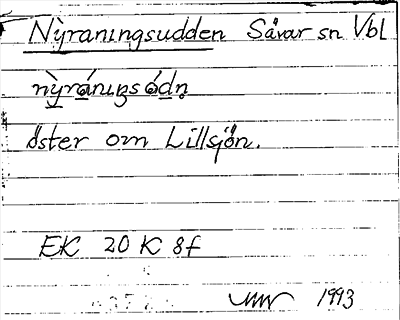 Nỳraningsudden Sävar sn Vbl
nỳránıŋsódṇ
öster om Lillsjön.
EK 20 K 8f
1993